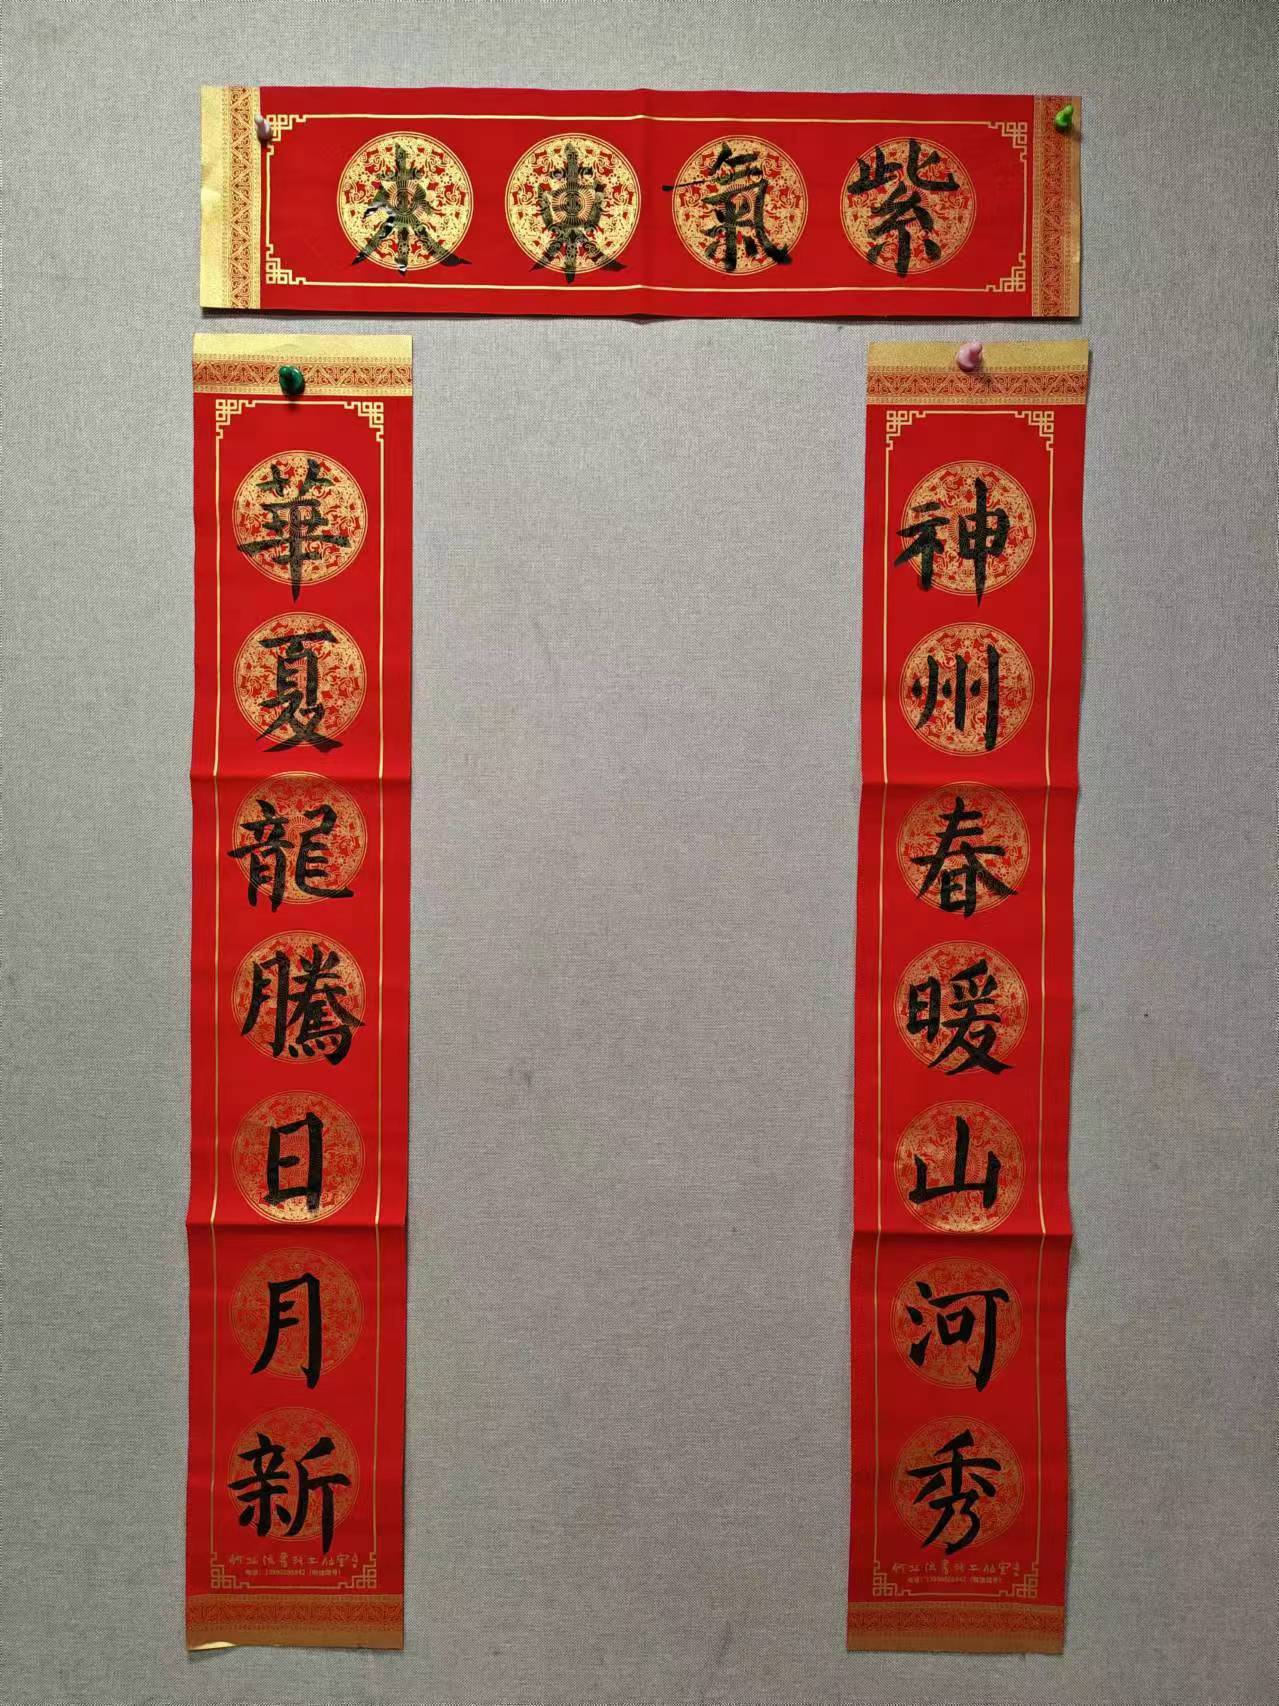 紫氣東來
神州春暖山河秀
華夏龍騰日月新